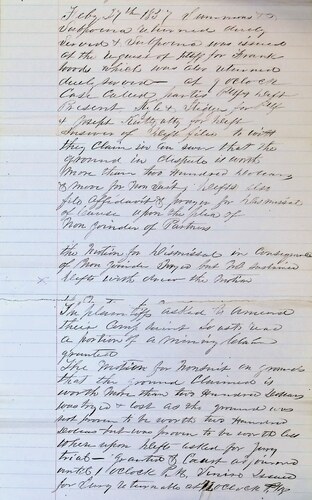 Feby 27th 1857 Summons &
Subpoena returned duly
served & Subpoena was issued
at the request of Plff for Frank
Woods which was also returned
duly served — at 9 oclock
Case Called parties Plff & Deft
Present & for Plf
& Joseph atty for Deft
Answer of Deft filed to wit
they Claim in Answer that the
ground in dispute is worth
More than two Hundred dollars
& move for Non Suit Defts also
file Affidavit & prayer for dismissal
of Cause upon the plea of
Non joinder of Partners
the Motion for dismissal in Consequence
of Non joinder argued but not sustained
Defts with draw the Motion
The plaintiffs asked to amend
their Complaint so as to read
a portion of a mining claim
granted
The Motion for Nonsuit on grounds
that the ground Claimed is
worth More than two Hundred dollars
was tryed & lost as the ground was
not proven to be worth two Hundred
dollars but was proven to be worth less
when upon Deft asked for Jury
trial — granted & Court adjourned
until 1 Oclock P.M. Venire Issued
for Jury Returnable at 1 Oclock P.M.